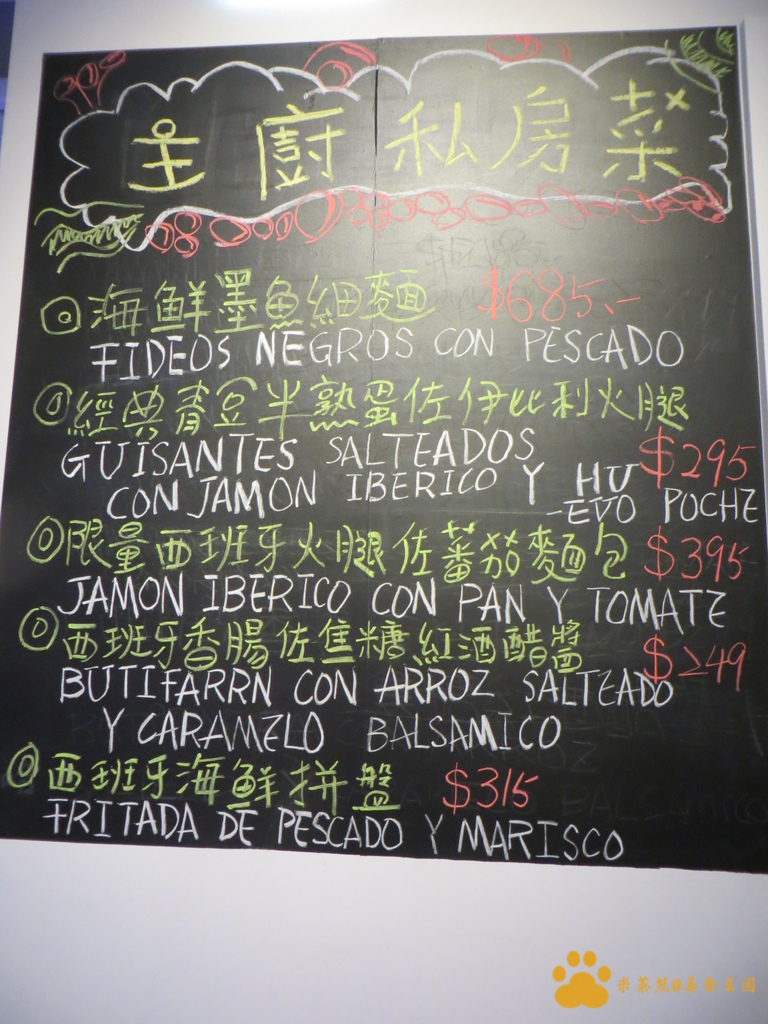 主廚私房菜
海鮮墨魚細麵 $685.-
FIDEOS NEGROS CON PESCADO
經典青豆半熟蛋佐伊比利火腿
GUISANTES SALTEADOS $295
CON JAMON IBERICO Y HU
-EVO POCHE
限量西班牙火腿佐蕃茄麵包 $395
JAMON IBERICO CON PAN Y TOMATE
西班牙香腸佐焦糖紅酒醋醬 $249
BUTIFARRN CON ARROZ SALTEADO
Y CARAMELO BALSAMICO
西班牙海鮮拼盤 $315
FRITADA DE PESCADO Y MARISCO